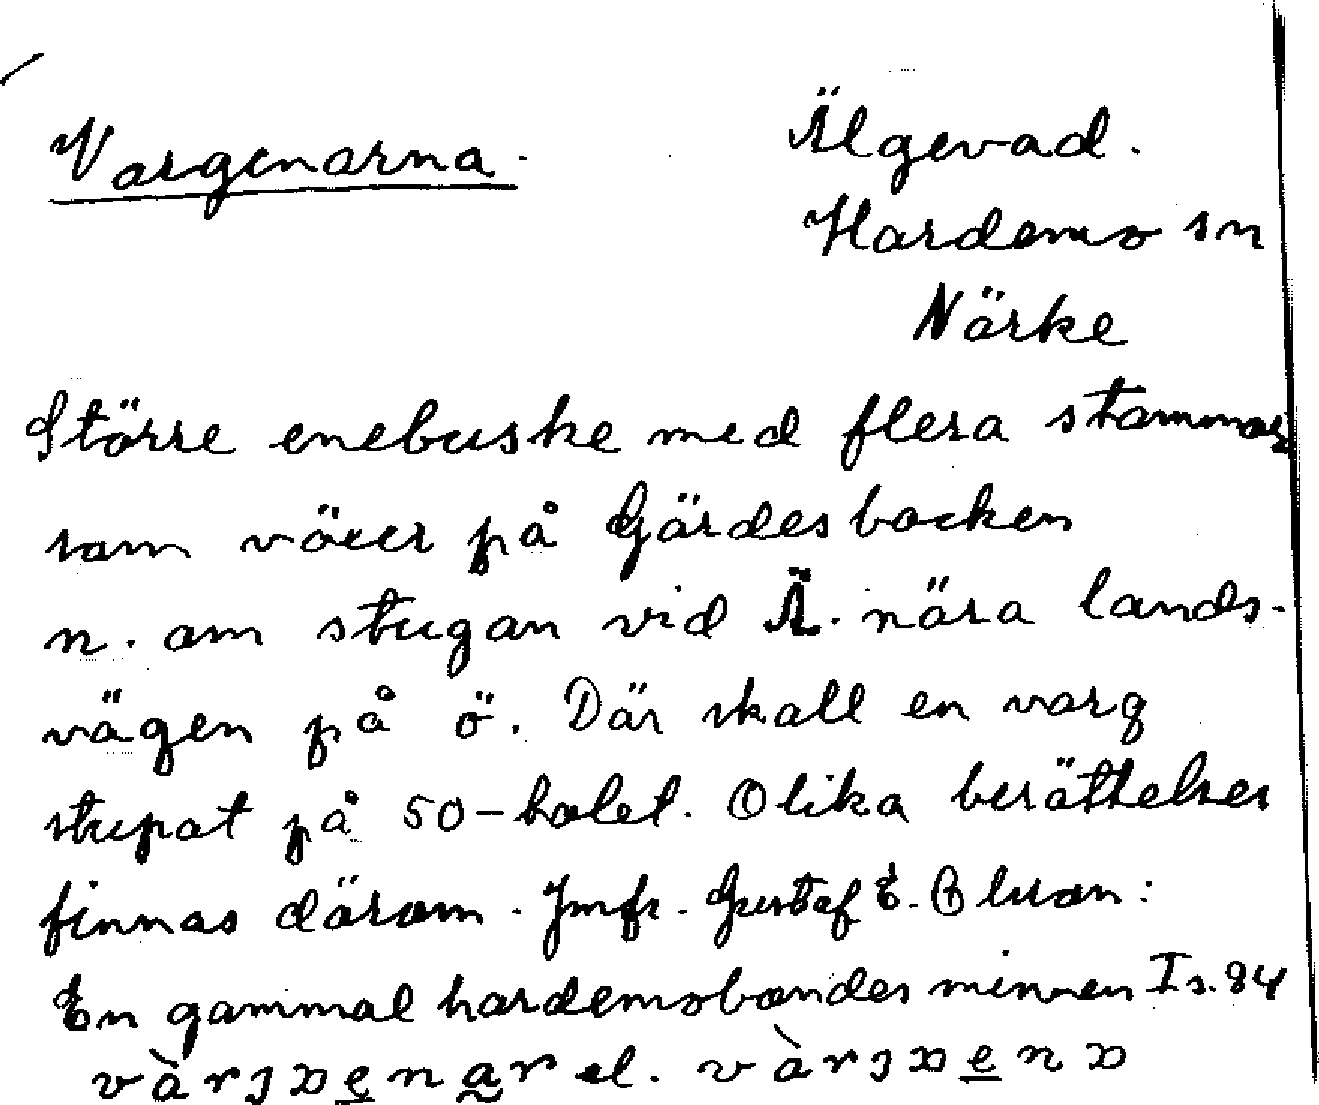 Vargenarna.
Älgevad.
Hardemo sn
Närke
Större enebuske med flera stammar
som växer på Gärdesbacken
n. om stugan vid Ä. nära lands-
vägen på ö. Där skall en varg
stupat på 50-talet. Olika berättelser
finnas därom. Jmfr. Gustaf E. Olsson:
En gammal hardemobondes minnen I s. 84
el.